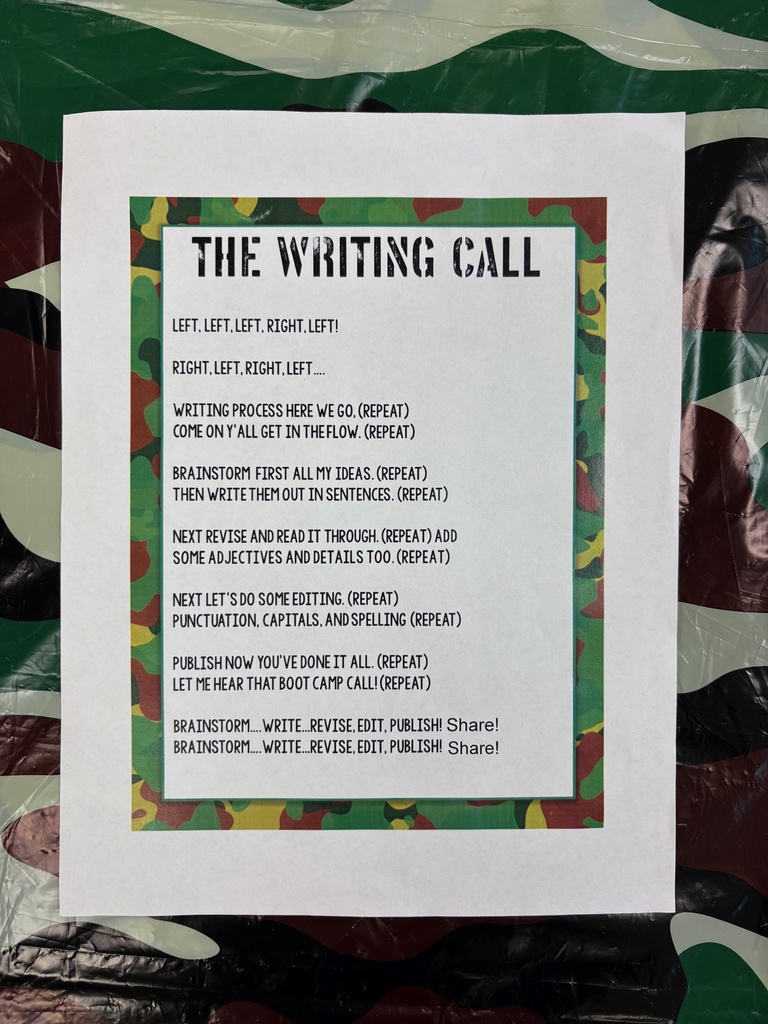 THE WRITING CALL
LEFT, LEFT, LEFT, RIGHT, LEFT!
RIGHT, LEFT, RIGHT, LEFT....
WRITING PROCESS HERE WE GO, (REPEAT)
COME ON Y'ALL GET IN THE FLOW. (REPEAT)
BRAINSTORM FIRST ALL MY IDEAS. (REPEAT)
THEN WRITE THEM OUT IN SENTENCES. (REPEAT)
NEXT REVISE AND READ IT THROUGH. (REPEAT) ADD
SOME ADJECTIVES AND DETAILS TOO. (REPEAT)
NEXT LET'S DO SOME EDITING. (REPEAT)
PUNCTUATION, CAPITALS, AND SPELLING (REPEAT)
PUBLISH NOW YOU'VE DONE IT ALL. (REPEAT)
LET ME HEAR THAT BOOT CAMP CALL! (REPEAT)
BRAINSTORM.... WRITE...REVISE, EDIT, PUBLISH! Share!
BRAINSTORM.... WRITE...REVISE, EDIT, PUBLISH! Share!